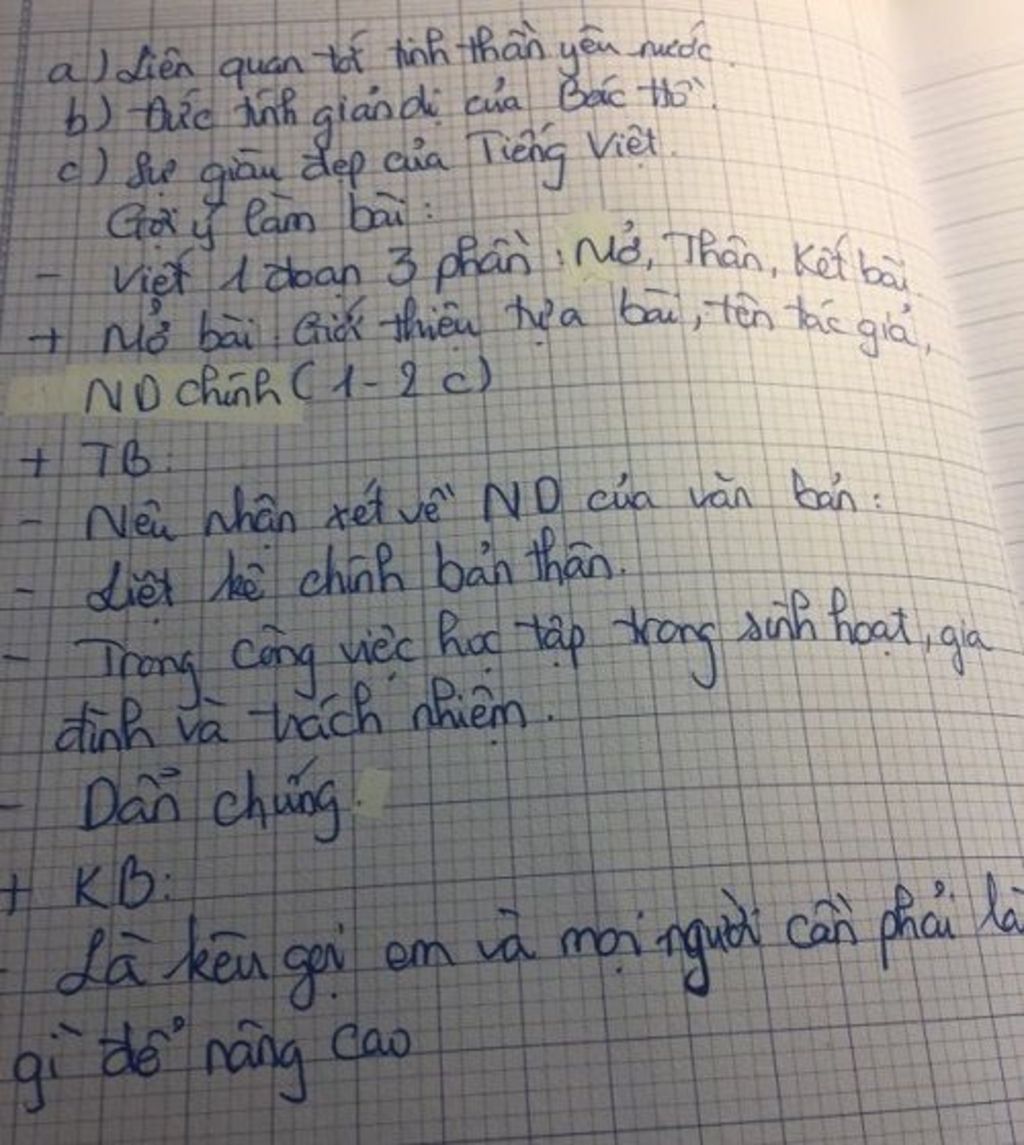 a) Liên quan tới tinh thần yêu nước.
b) Đức tính giản dị của Bác Hồ.
c) Sự giàu đẹp của Tiếng Việt.
Gợi ý làm bài:
- Viết 1 đoạn 3 phần: Mở, Thân, Kết bài.
+ Mở bài: Giới thiệu tựa bài, tên tác giả,
ND chính (1-2 c)
+ TB:
- Nêu nhận xét về ND của văn bản:
- Liệt kê chính bản thân.
- Trong công việc học tập trong sinh hoạt, gia
đình và trách nhiệm.
- Dẫn chứng.
+ KB:
- Là kêu gọi em và mọi người cần phải là
gì để nâng cao